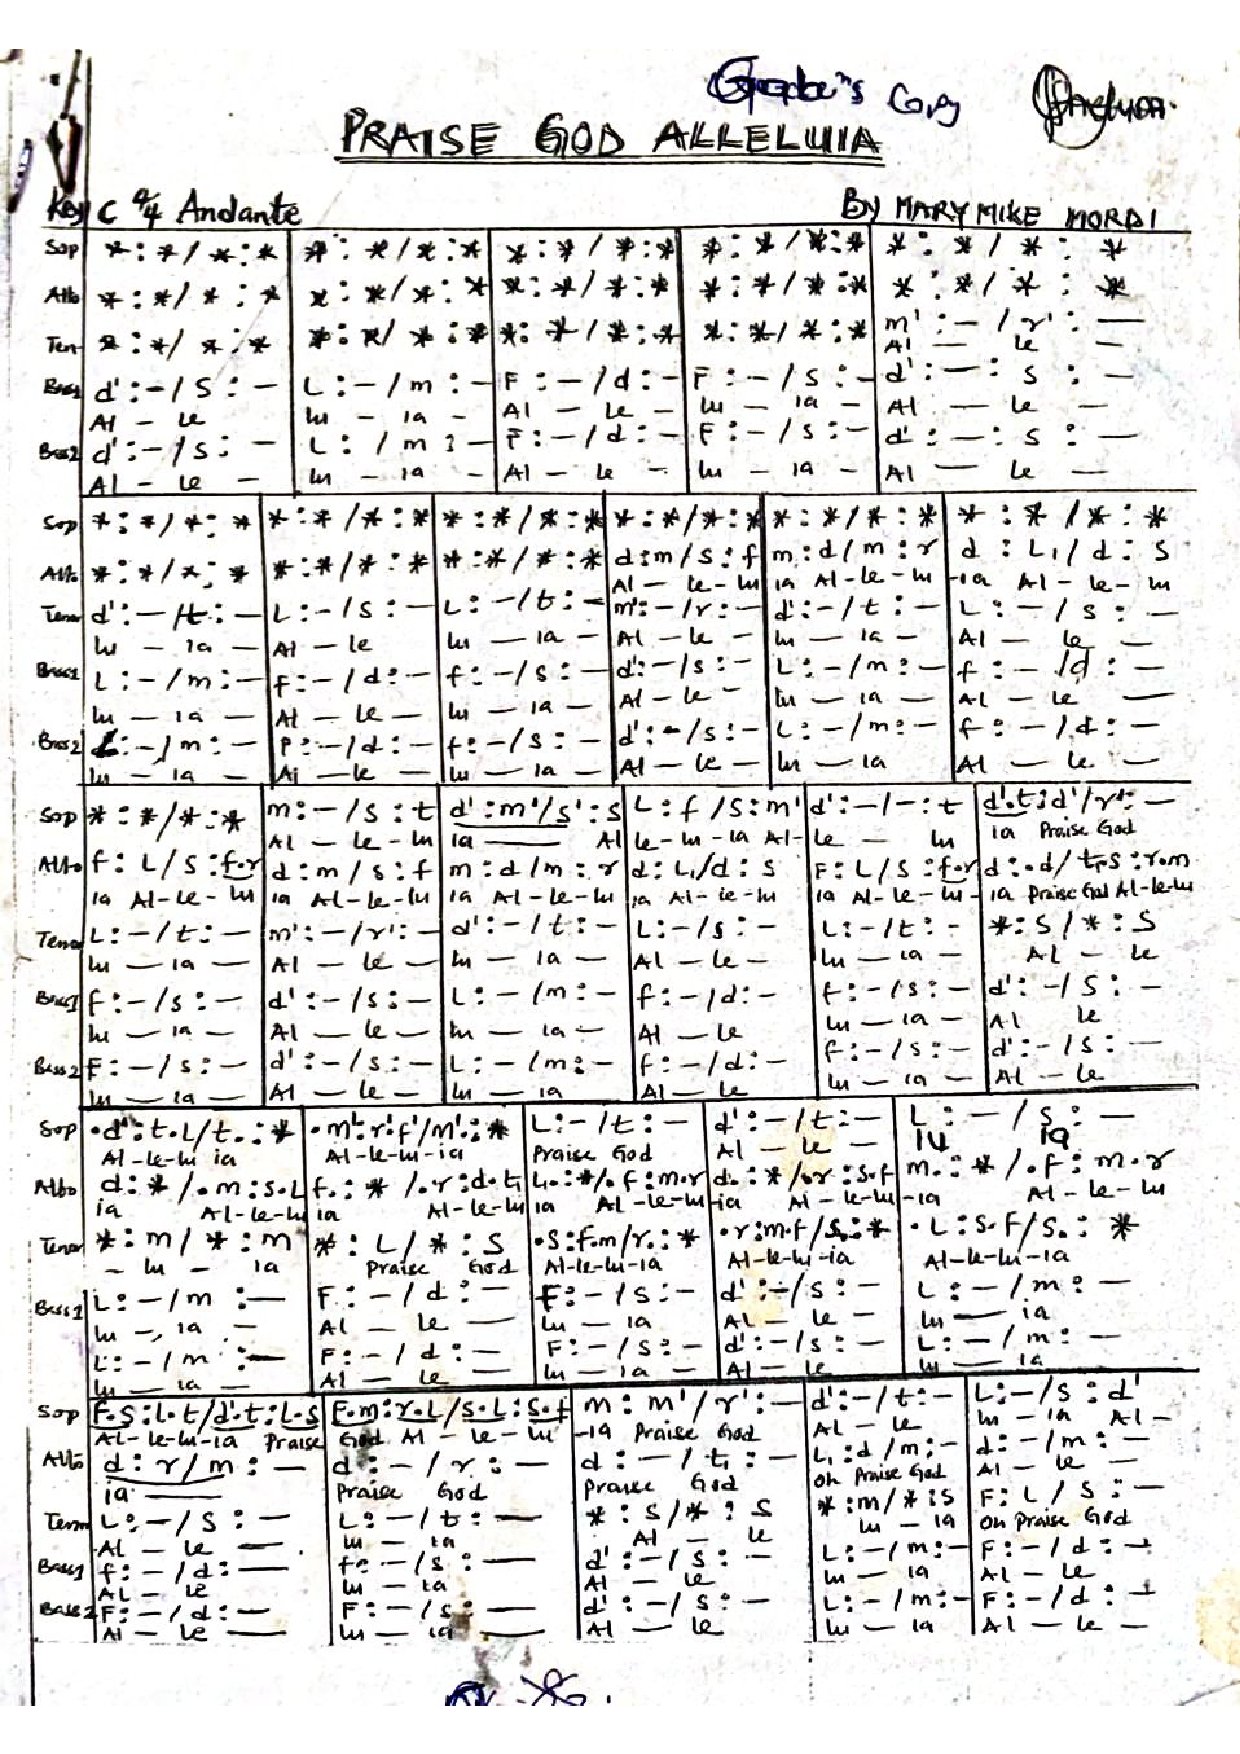 Copy
PRAISE GOD ALLELUIA
Key C 4/4 Andante By MARY MIKE MORDI
Sop *:*/*:* | *:*/*:* | *:*/*:* | *:*/*:* | *:*/*:*
Alto *:*/*:* | *:*/*:* | *:*/*:* | *:*/*:* | *:*/*:*
Ten *:*/*:* | *:*/*:* | *:*/*:* | *:*/*:* | m':-/r':-
Al - le -
Bass1 d':-/s:- | L:-/m:- | F:-/d:- | F:-/s:- | d':-:s:-
Al - le | lu - ia - | Al - le - | lu - ia - | Al - le -
Bass2 d':-/s:- | L: /m:- | F:-/d:- | F:-/s:- | d':-:s:-
Al - le - | lu - ia - | Al - le - | lu - ia - | Al - le -
Sop *:*/*:* | *:*/*:* | *:*/*:* | *:*/*:* | *:*/*:* | *:*/*:*
Alto *:*/*:* | *:*/*:* | *:*/*:* | d:m/s:f | m:d/m:r | d:L₁/d:s
Al - le-lu | ia Al-le-lu | -ia Al-le-lu
Tenor d':-/t:- | L:-/s:- | L:-/t:- | m':-/r:- | d':-/t:- | L:-/s:-
lu - ia - | Al - le | lu - ia - | Al - le - | lu - ia - | Al - le -
Bass1 L:-/m:- | f:-/d:- | f:-/s:- | d':-/s:- | L:-/m:- | f:-/d:-
lu - ia - | Al - le - | lu - ia - | Al - le - | lu - ia - | Al - le -
Bass2 L:-/m:- | f:-/d:- | f:-/s:- | d':-/s:- | L:-/m:- | f:-/d:-
lu - ia - | Al - le - | lu - ia - | Al - le - | lu - ia | Al - le -
Sop *:*/*:* | m:-/s:t | d':m'/s':s | L:f/s:m' | d':-/-:t | d'.t:d'/r':-
Al - le-lu | ia - Al | le-lu-ia Al- | le - lu | ia Praise God
Alto f:L/s:f.r | d:m/s:f | m:d/m:r | d:L₁/d:s | F:L/s:f.r | d:.d/t₁.s:r.m
ia Al-le-lu | ia Al-le-lu | ia Al-le-lu | ia Al-le-lu | ia Al-le-lu- | ia Praise God Al-le-lu
Tenor L:-/t:- | m':-/r':- | d':-/t:- | L:-/s:- | L:-/t:- | *:s/*:s
lu - ia - | Al - le - | lu - ia - | Al - le - | lu - ia - | Al - le
Bass1 f:-/s:- | d':-/s:- | L:-/m:- | f:-/d:- | f:-/s:- | d':-/s:-
lu - ia - | Al - le - | lu - ia - | Al - le | lu - ia - | Al le
Bass2 F:-/s:- | d':-/s:- | L:-/m:- | f:-/d:- | f:-/s:- | d':-/s:-
lu - ia - | Al - le - | lu - ia | Al - le | lu - ia - | Al - le
Sop .d':t.L/t.:* | .m':r'.f'/m'.:* | L:-/t:- | d':-/t:- | L:-/s:-
Al-le-lu ia | Al-le-lu-ia | Praise God | Al - le - | lu ia
Alto d:*/.m:s.L | f.:*/.r:d.t₁ | L₁.:*/.f:m.r | d.:*/.r:s.f | m.:*/.f:m.r
ia Al-le-lu | ia Al-le-lu | ia Al-le-lu | -ia Al-le-lu | -ia Al-le-lu
Tenor *:m/*:m | *:L/*:s | .s:f.m/r.:* | .r:m.f/s.:* | .L:s.f/s.:*
- lu - ia | Praise God | Al-le-lu-ia | Al-le-lu-ia | Al-le-lu-ia
Bass1 L:-/m:- | F:-/d:- | F:-/s:- | d':-/s:- | L:-/m:-
lu - ia - | Al - le - | lu - ia | Al - le - | lu - ia
L:-/m:- | F:-/d:- | F:-/s:- | d':-/s:- | L:-/m:-
lu - ia - | Al - le - | lu - ia - | Al - le | lu - ia
Sop F.s:L.t/d'.t:L.s | F.m:r.L/s.L:s.f | m:m'/r':- | d':-/t:- | L:-/s:d'
Al-le-lu-ia Praise | God Al - le - lu | -ia Praise God | Al - le | lu - ia Al -
Alto d:r/m:- | d:-/r:- | d:-/t₁:- | L₁:d/m:- | d:-/m:-
ia - | Praise God | Praise God | oh Praise God | Al - le -
Tenor L:-/s:- | L:-/t:- | *:s/*:s | *:m/*:s | F:L/s:-
Al - le - | lu - ia | Al - le | lu - ia | oh Praise God
Bass1 f:-/d:- | f:-/s:- | d':-/s:- | L:-/m:- | F:-/d:-
Al - le | lu - ia | Al - le | lu - ia | Al - le
Bass2 F:-/d:- | F:-/s:- | d':-/s:- | L:-/m:- | F:-/d:-
Al - le - | lu - ia - | Al - le | lu - ia | Al - le -